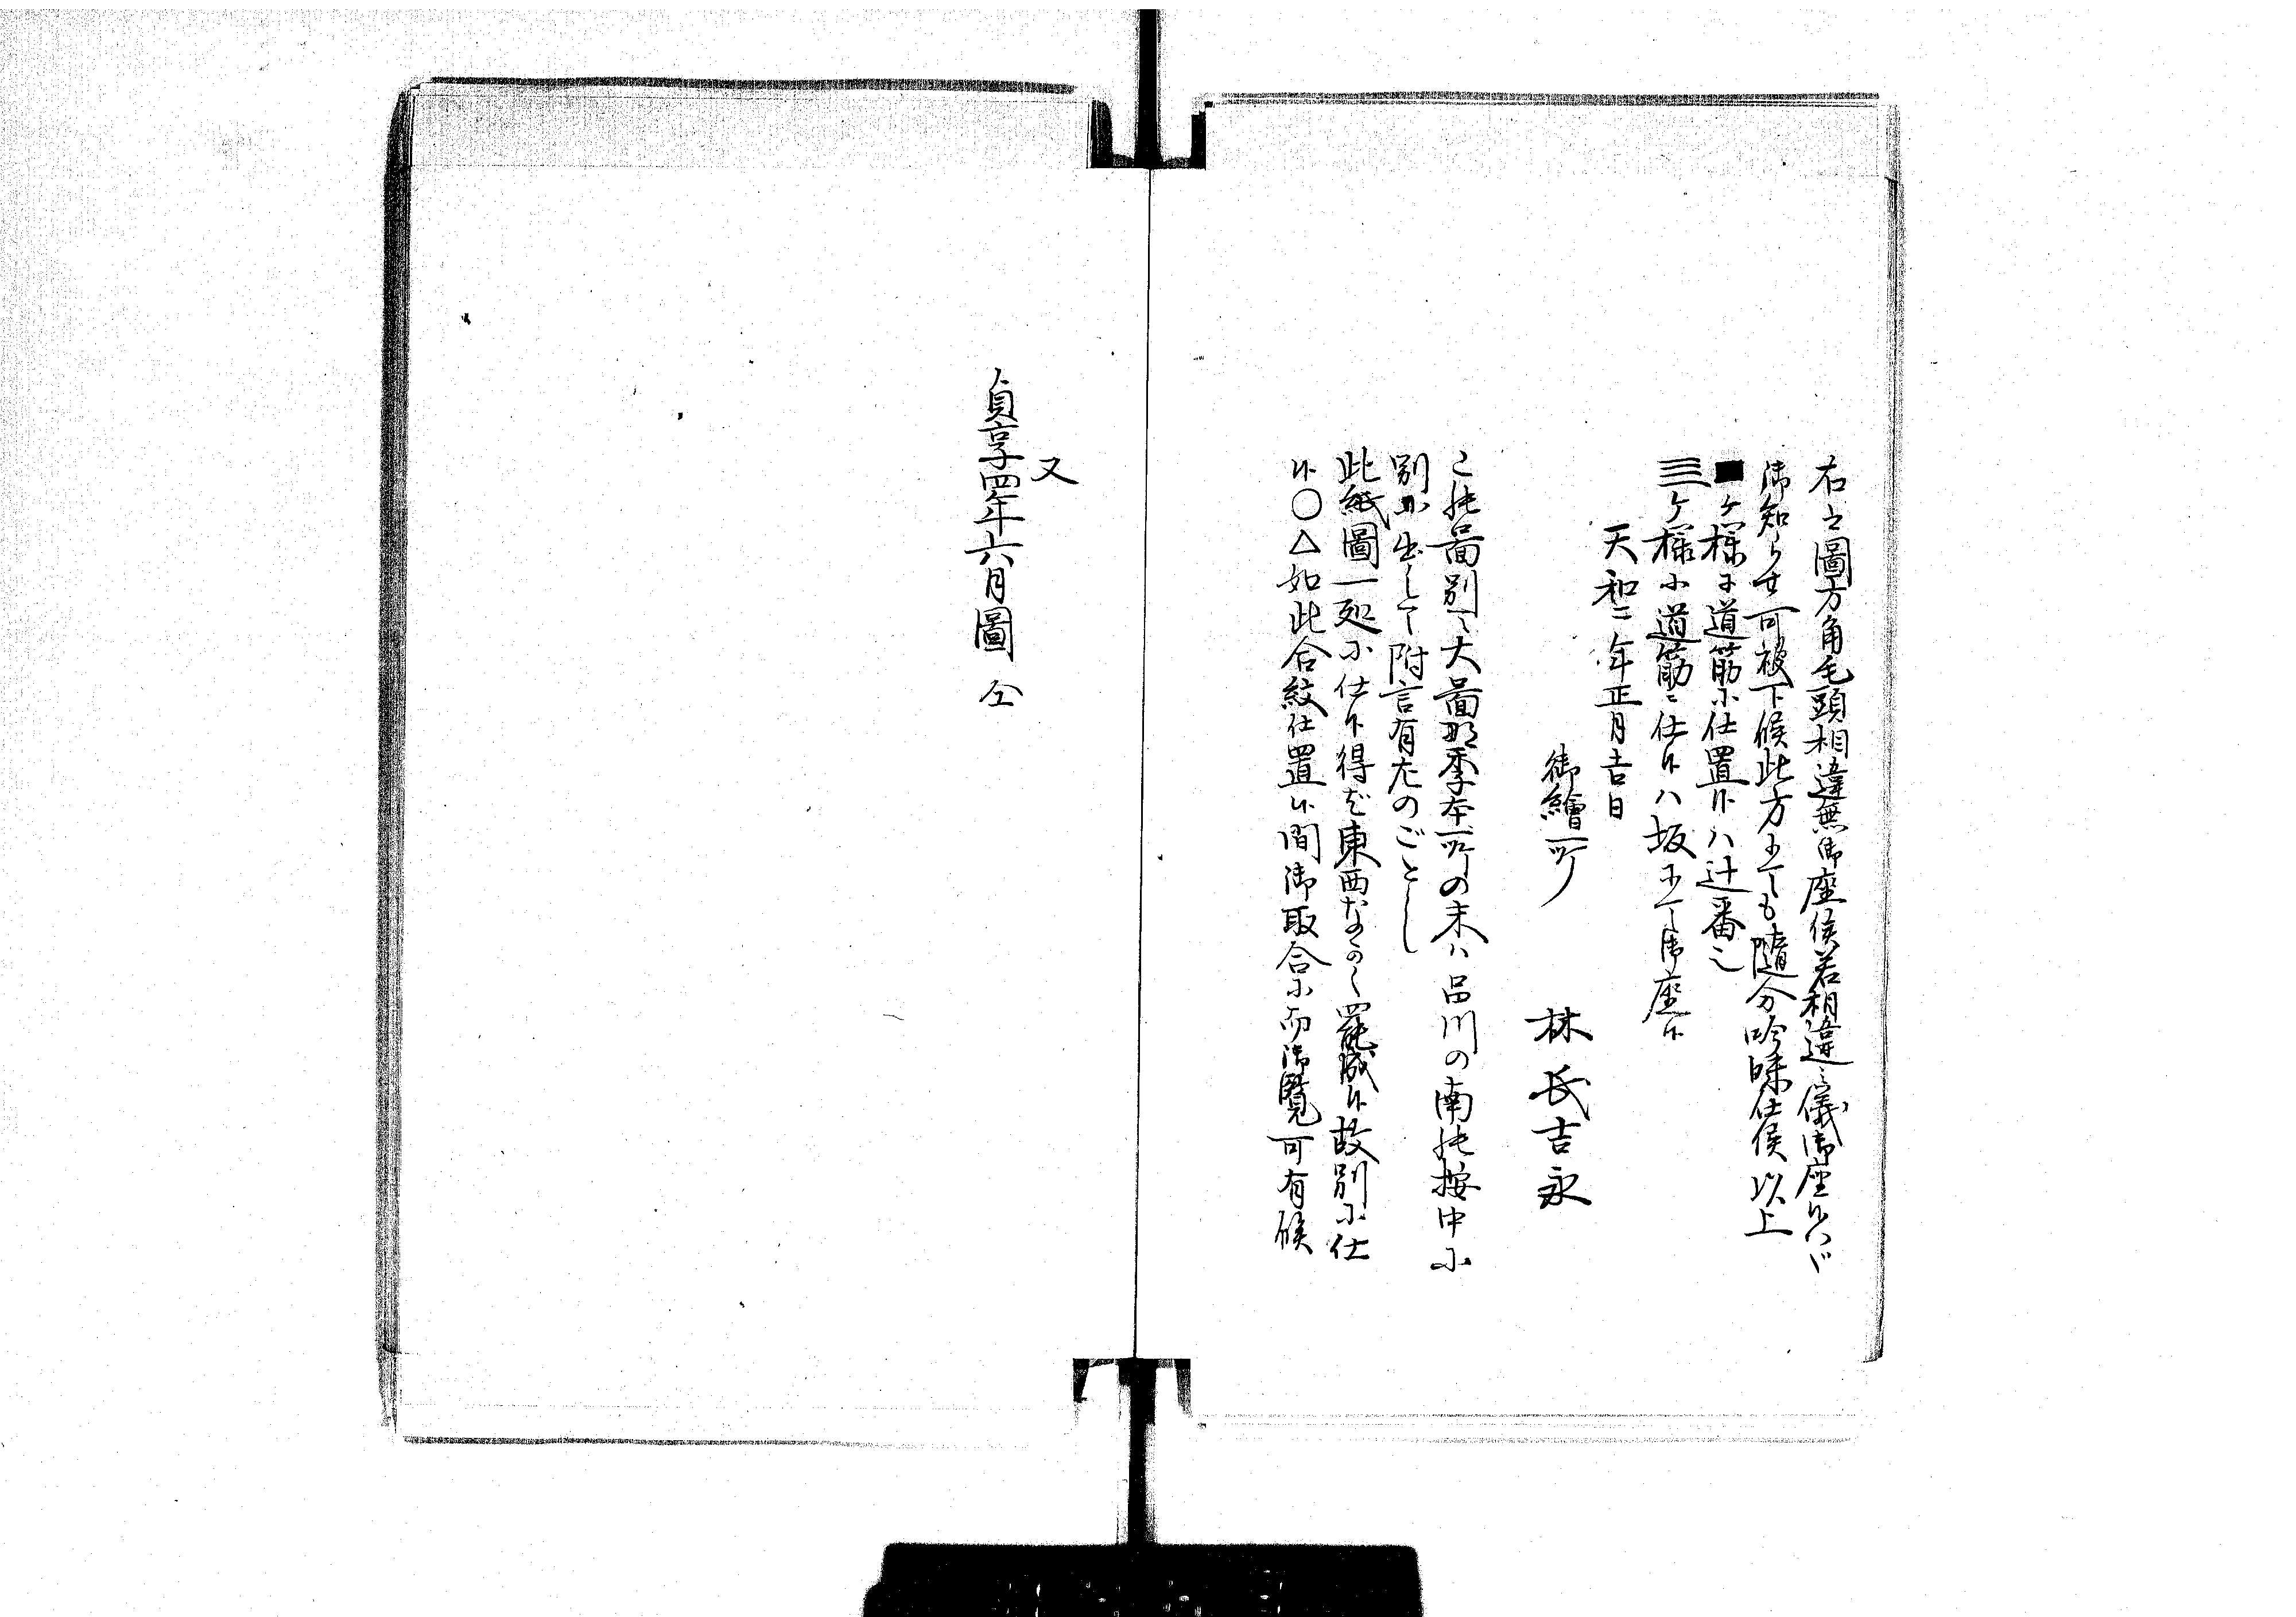 右之圖方角毛頭相違無御座侯若相違之儀御座候ハヾ
御知らせ可被下候此方ニても隨分吟味仕侯以上
■ケ様に道筋に仕置候ハ辻番也
三ケ様に道筋ニ仕候ハ坂ニて御座候
天和二年正月吉日
御繪所　林氏吉永
この啚別て大啚本所の末ハ品川の南
別に出して附言有左のごとし
此紙圖一処に仕候得ば東西なかく罷成候故別に仕
候〇△如此合紋仕置候間御取合に而御覧可有候
又
貞享四年六月圖　仝